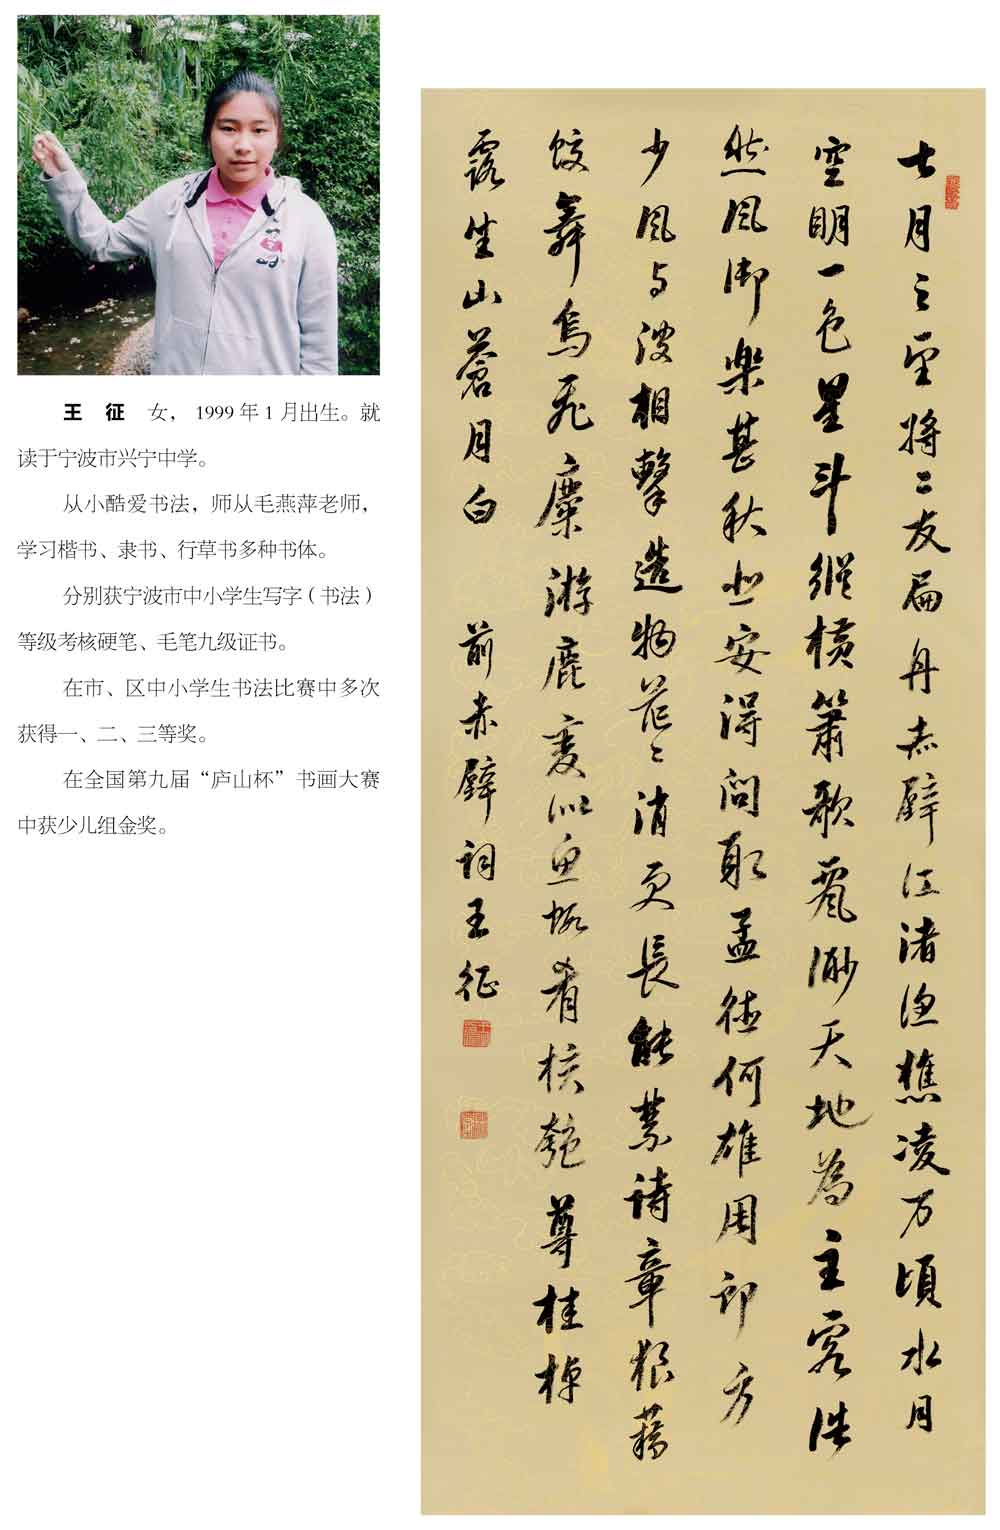 王 征 女， 1999年1月出生。就
读于宁波市兴宁中学。
从小酷爱书法，师从毛燕萍老师，
学习楷书、隶书、行草书多种书体。
分别获宁波市中小学生写字（书法）
等级考核硬笔、毛笔九级证书。
在市、区中小学生书法比赛中多次
获得一、二、三等奖。
在全国第九届“庐山杯”书画大赛
中获少儿组金奖。
七月之望将二友扁舟赤壁江渚渔樵凌万頃水月
空明一色星斗縱横簫歌飄渺天地為主客浩
然風御樂甚秋悲安得問取孟德何雄周郎方
少風与波相擊造物茫〻消更長能禁詩章狼藉
蛟舞烏飛麋游鹿变似魚蝦肴核匏尊桂棹
露生山蒼月白 前赤壁詞王征